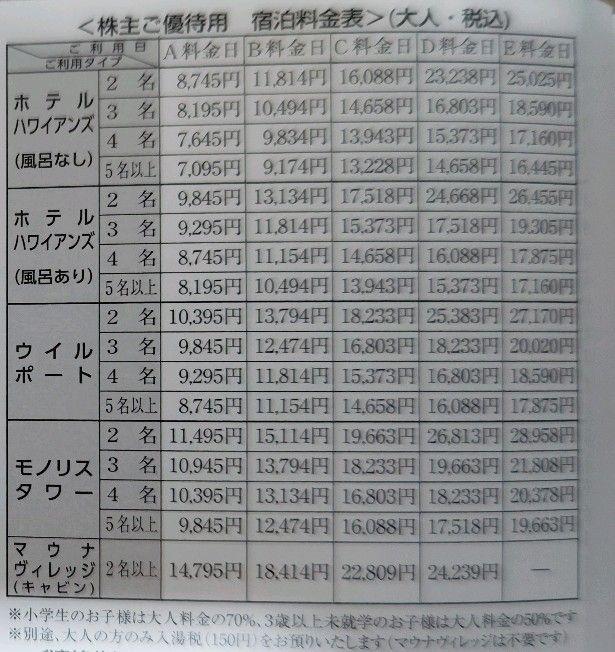 <株主ご優待用 宿泊料金表>(大人・税込)
ご利用日 A料金日 B料金日 C料金日 D料金日 E料金日
ご利用タイプ
ホテルハワイアンズ(風呂なし)
2名 8,745円 11,814円 16,088円 23,238円 25,025円
3名 8,195円 10,494円 14,658円 16,803円 18,590円
4名 7,645円 9,834円 13,943円 15,373円 17,160円
5名以上 7,095円 9,174円 13,228円 14,658円 16,445円
ホテルハワイアンズ(風呂あり)
2名 9,845円 13,134円 17,518円 24,668円 26,455円
3名 9,295円 11,814円 15,373円 17,518円 19,305円
4名 8,745円 11,154円 14,658円 16,088円 17,875円
5名以上 8,195円 10,494円 13,943円 15,373円 17,160円
ウイルポート
2名 10,395円 13,794円 18,233円 25,383円 27,170円
3名 9,845円 12,474円 16,803円 18,233円 20,020円
4名 9,295円 11,814円 15,373円 16,803円 18,590円
5名以上 8,745円 11,154円 14,658円 16,088円 17,875円
モノリスタワー
2名 11,495円 15,114円 19,663円 26,813円 28,958円
3名 10,945円 13,794円 18,233円 19,663円 21,808円
4名 10,395円 13,134円 16,803円 18,233円 20,378円
5名以上 9,845円 12,474円 16,088円 17,518円 19,663円
マウナヴィレッジ(キャビン)
2名以上 14,795円 18,414円 22,809円 24,239円 ―
※小学生のお子様は大人料金の70%、3歳以上未就学のお子様は大人料金の50%です
※別途、大人の方のみ入湯税(150円)をお預りいたします(マウナヴィレッジは不要です)